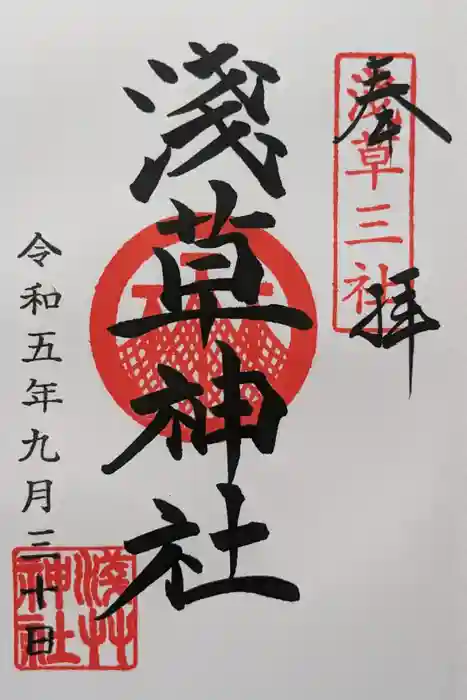 奉拝
淺草三社
淺草神社
令和五年九月三十日
淺艸
神社